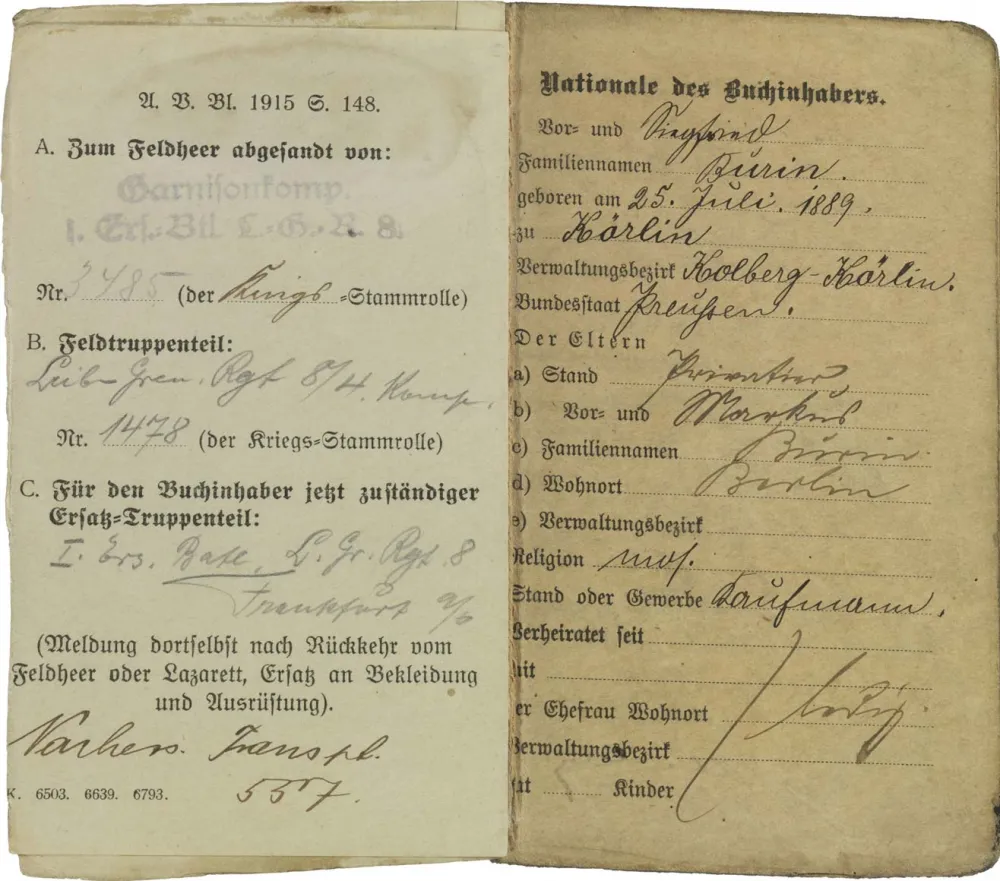 A. V. Bl. 1915 S. 148.
A. Zum Feldheer abgesandt von:
Garnisonkomp.
I. Ers.-Btl. L.-G.-R. 8.
Nr. 3485 (der Kriegs-Stammrolle)
B. Feldtruppenteil:
Leib-Gren. Rgt 8/4. Komp.
Nr. 1478 (der Kriegs-Stammrolle)
C. Für den Buchinhaber jetzt zuständiger
Ersatz-Truppenteil:
I. Ers. Batl. L. Gr. Rgt. 8
Frankfurt a/o
(Meldung dortselbst nach Rückkehr vom
Feldheer oder Lazarett, Ersatz an Bekleidung
und Ausrüstung).
Nachers. Transpt.
557.
K. 6503. 6639. 6793.
Nationale des Buchinhabers.
Vor- und Siegfried
Familiennamen Burin.
geboren am 25. Juli. 1889.
zu Körlin
Verwaltungsbezirk Kolberg-Körlin.
Bundesstaat Preußen.
Der Eltern
a) Stand Privatier
b) Vor- und Markus
c) Familiennamen Burin
d) Wohnort Berlin
e) Verwaltungsbezirk
Religion mos.
Stand oder Gewerbe Kaufmann.
Verheiratet seit
mit
der Ehefrau Wohnort ledig.
Verwaltungsbezirk
hat Kinder